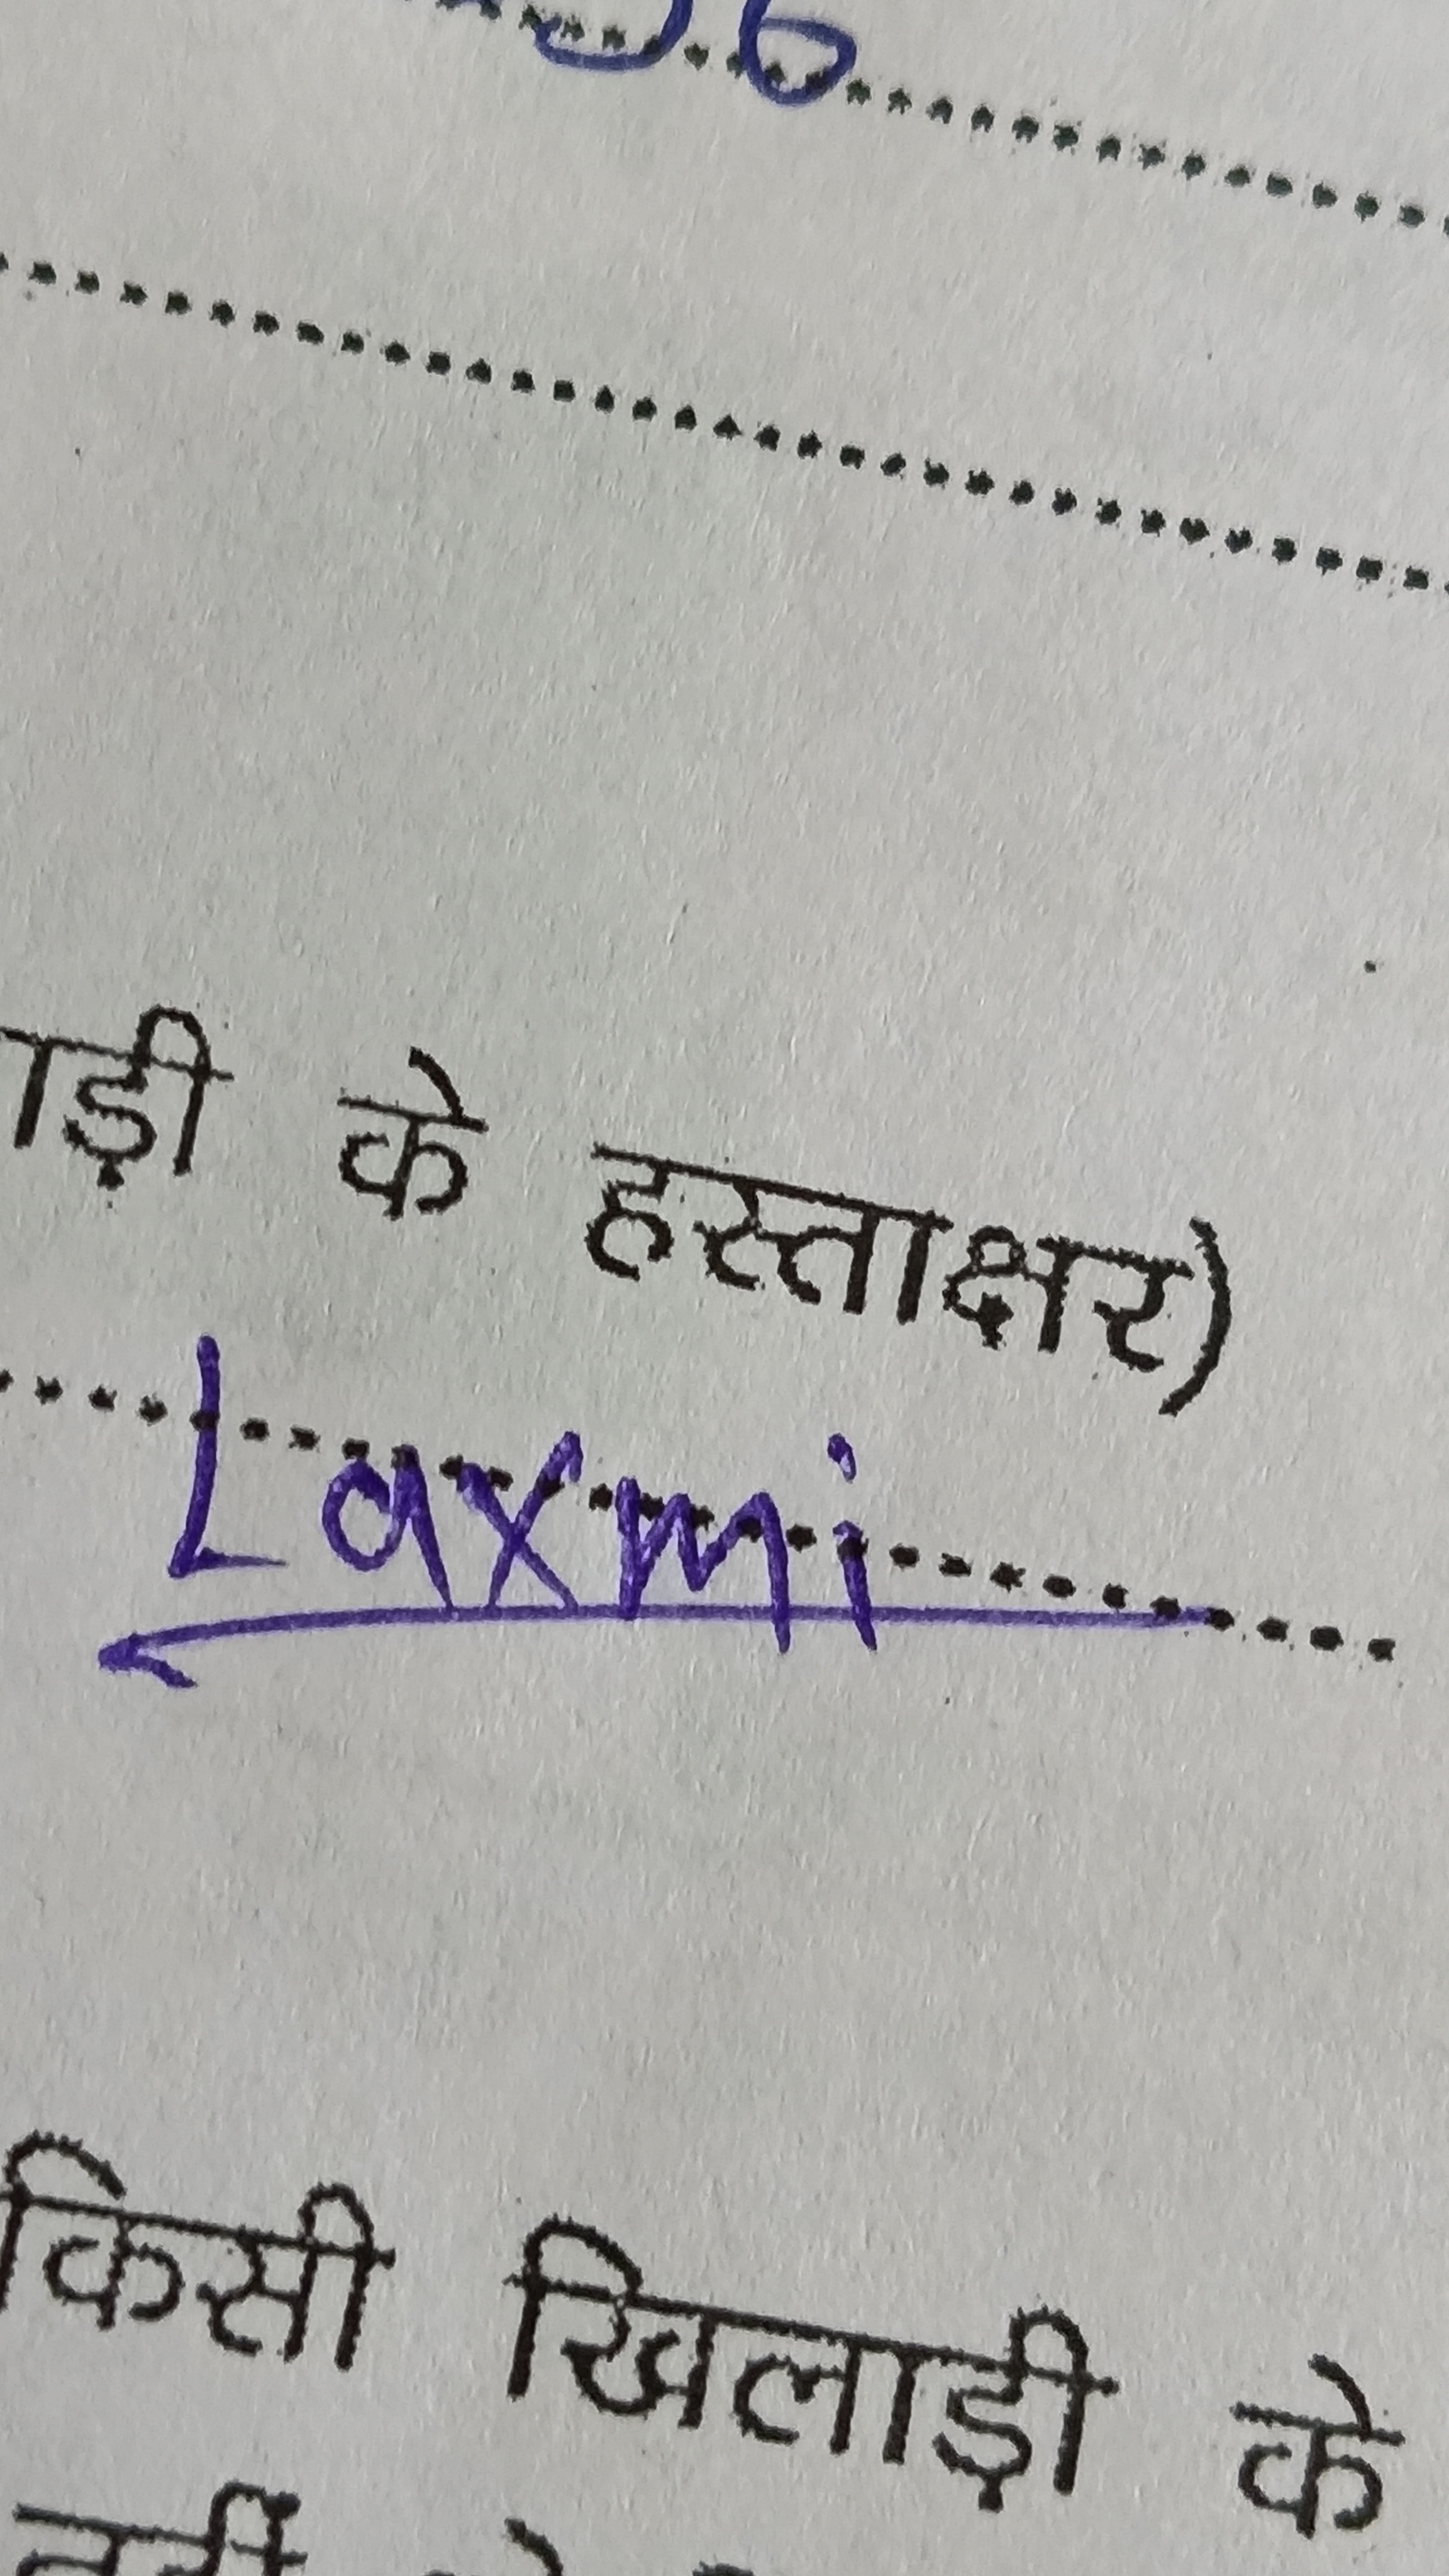 के हस्ताक्षर)
Laxmi
किसी खिलाड़ी के